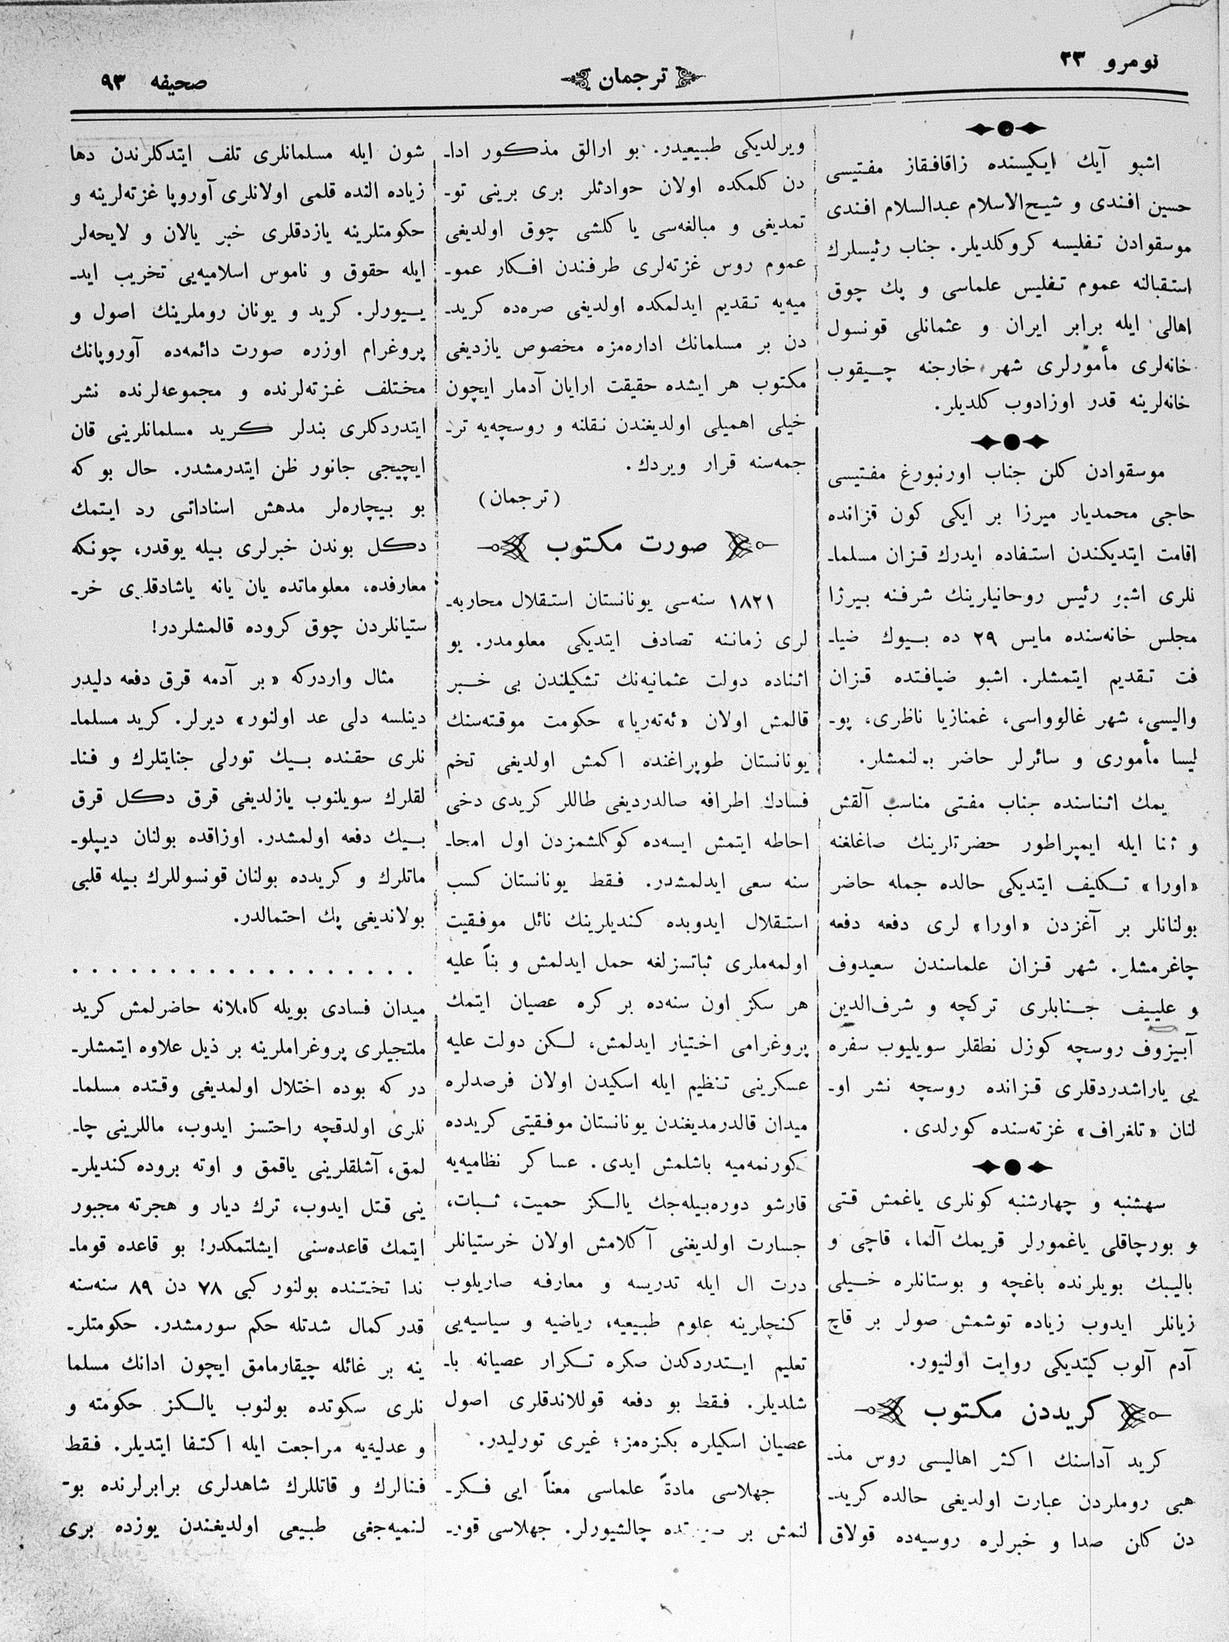 نومرو ٢٣
ترجمان
صحيفه ٩٣
اشبو آيك ايكيسنده زاقافقاز مفتيسى
حسين افندى و شيخ‌الاسلام عبدالسلام افندى
موسقوادن تفليسه كروكلديلر. جناب رئيسلرك
استقبالنه عموم تفليس علماسى و پك چوق
اهالى ايله برابر ايران و عثمانلى قونسول
خانه‌لرى مأمورلرى شهر خارجنه چيقوب
خانه‌لرينه قدر اوزادوب كلديلر.
موسقوادن كلن جناب اورنبورغ مفتيسى
حاجى محمديار ميرزا بر ايكى كون قزانده
اقامت ايتديكندن استفاده ايدرك قزان مسلما-
نلرى اشبو رئيس روحانيلرينك شرفنه بيرژا
مجلس خانه‌سنده مايس ٢٩ ده بيوك ضيا-
فت تقديم ايتمشلر. اشبو ضيافتده قزان
واليسى، شهر غالوواسى، غمنازيا ناظرى، پو-
ليسا مأمورى و سائرلر حاضر بولنمشلر.
يمك اثناسنده جناب مفتى مناسب آلقش
و ثنا ايله ايمپراطور حضرتلرينك صاغلغنه
«اورا» تكليف ايتديكى حالده جمله حاضر
بولنانلر بر آغزدن «اورا» لرى دفعه دفعه
چاغرمشلر. شهر قزان علماسندن سعيدوف
و علييف جنابلرى تركچه و شرف‌الدين
آبيزوف روسچه كوزل نطقلر سويليوب سفره
يى ياراشدردقلرى قزانده روسچه نشر او-
لنان «تلغراف» غزته‌سنده كورلدى.
سه‌شنبه و چهارشنبه كونلرى ياغمش قتى
و بورچاقلى ياغمورلر قريمك آلما، قاچى و
باليبك بويلرنده باغچه و بوستانلره خيلى
زيانلر ايدوب زياده توشمش صولر بر قاچ
آدم آلوب كيتديكى روايت اولنيور.
كريددن مكتوب
كريد آداسنك اكثر اهاليسى روس مذ-
هبى روملردن عبارت اولديغى حالده كريد-
دن كلن صدا و خبرلره روسيه‌ده قولاق
ويرلديكى طبيعيدر. بو ارالق مذكور ادا-
دن كلمكده اولان حوادثلر برى برينى تو-
تمديغى و مبالغه‌سى ياكلشى چوق اولديغى
عموم روس غزته‌لرى طرفندن افكار عمو-
ميه‌يه تقديم ايدلمكده اولديغى صره‌ده كريد-
دن بر مسلمانك اداره‌مزه مخصوص يازديغى
مكتوب هر ايشده حقيقت ارايان آدمار ايچون
خيلى اهميلى اولديغندن نقلنه و روسچه‌يه تر-
جمه‌سنه قرار ويردك.
(ترجمان)
صورت مكتوب
١٨٢١ سنه‌سى يونانستان استقلال محاربه-
لرى زماننه تصادف ايتديكى معلومدر. يو
اثناده دولت عثمانيه‌نك تشكيلندن بى خبر
قالمش اولان «ئه‌ته‌ريا» حكومت موقته‌سنك
يونانستان طوپراغنده اكمش اولديغى تخم
فسادك اطرافه صالدرديغى طاللر كريدى دخى
احاطه ايتمش ايسه‌ده كوكلشمزدن اول امحا-
سنه سعى ايدلمشدر. فقط يونانستان كسب
استقلال ايدوبده كنديلرينك نائل موفقيت
اولمه‌ملرى ثباتسزلغه حمل ايدلمش و بناً عليه
هر سكز اون سنه‌ده بر كره عصيان ايتمك
پروغرامى اختيار ايدلمش، لكن دولت عليه
عسكرينى تنظيم ايله اسكيدن اولان فرصدلره
ميدان قالدرمديغندن يونانستان موفقيتى كريدده
كورنمه‌ميه باشلمش ايدى. عساكر نظاميه‌يه
قارشو دوره‌بيله‌جك يالكز حميت، ثبات،
جسارت اولديغنى آكلامش اولان خرستيانلر
درت ال ايله تدريسه و معارفه صاريلوب
كنجلرينه علوم طبيعيه، رياضيه و سياسيه‌يى
تعليم ايتدردكدن صكره تكرار عصيانه با-
شلديلر. فقط بو دفعه قوللاندقلرى اصول
عصيان اسكيلره بكزه‌مز؛ غيرى تورليدر.
جهلاسى مادةً علماسى معناً ايى فكر-
لنمش بر صورتده چالشيورلر. جهلاسى قور-
شون ايله مسلمانلرى تلف ايتدكلرندن دها
زياده النده قلمى اولانلرى آوروپا غزته‌لرينه و
حكومتلرينه يازدقلرى خبر يالان و لايحه‌لر
ايله حقوق و ناموس اسلاميه‌يى تخريب ايد-
ييورلر. كريد و يونان روملرينك اصول و
پروغرام اوزره صورت دائمه‌ده آوروپانك
مختلف غزته‌لرنده و مجموعه‌لرنده نشر
ايتدردكلرى بندلر كريد مسلمانلرينى قان
ايچيجى جانور ظن ايتدرمشدر. حال بو كه
بو بيچاره‌لر مدهش اسناداتى رد ايتمك
دكل بوندن خبرلرى بيله يوقدر، چونكه
معارفده، معلوماتده يان يانه ياشادقلرى خر-
ستيانلردن چوق كروده قالمشلردر!
مثال واردركه «بر آدمه قرق دفعه دليدر
دينلسه دلى عد اولنور» ديرلر. كريد مسلما-
نلرى حقنده بيك تورلى جنايتلرك و فنا-
لقلرك سويلنوب يازلديغى قرق دكل قرق
بيك دفعه اولمشدر. اوزاقده بولنان ديپلو-
ماتلرك و كريدده بولنان قونسوللرك بيله قلبى
بولانديغى پك احتمالدر.
. . . . . . . . . . . . . . . . . .
ميدان فسادى بويله كاملانه حاضرلمش كريد
ملتجيلرى پروغراملرينه بر ذيل علاوه ايتمشلر-
در كه بوده اختلال اولمديغى وقتده مسلما-
نلرى اولدقچه راحتسز ايدوب، ماللرينى چا-
لمق، آشلقلرينى ياقمق و اوته بروده كنديلر-
ينى قتل ايدوب، ترك ديار و هجرته مجبور
ايتمك قاعده‌سنى ايشلتمكدر! بو قاعده قوما-
ندا تختنده بولنور كبى ٧٨ دن ٨٩ سنه‌سنه
قدر كمال شدتله حكم سورمشدر. حكومتلر-
ينه بر غائله چيقارمامق ايچون ادانك مسلما
نلرى سكوتده بولنوب يالكز حكومته و
و عدليه‌يه مراجعت ايله اكتفا ايتديلر. فقط
فنالرك و قاتللرك شاهدلرى برابرلرنده بو-
لنميه‌جغى طبيعى اولديغندن يوزده برى